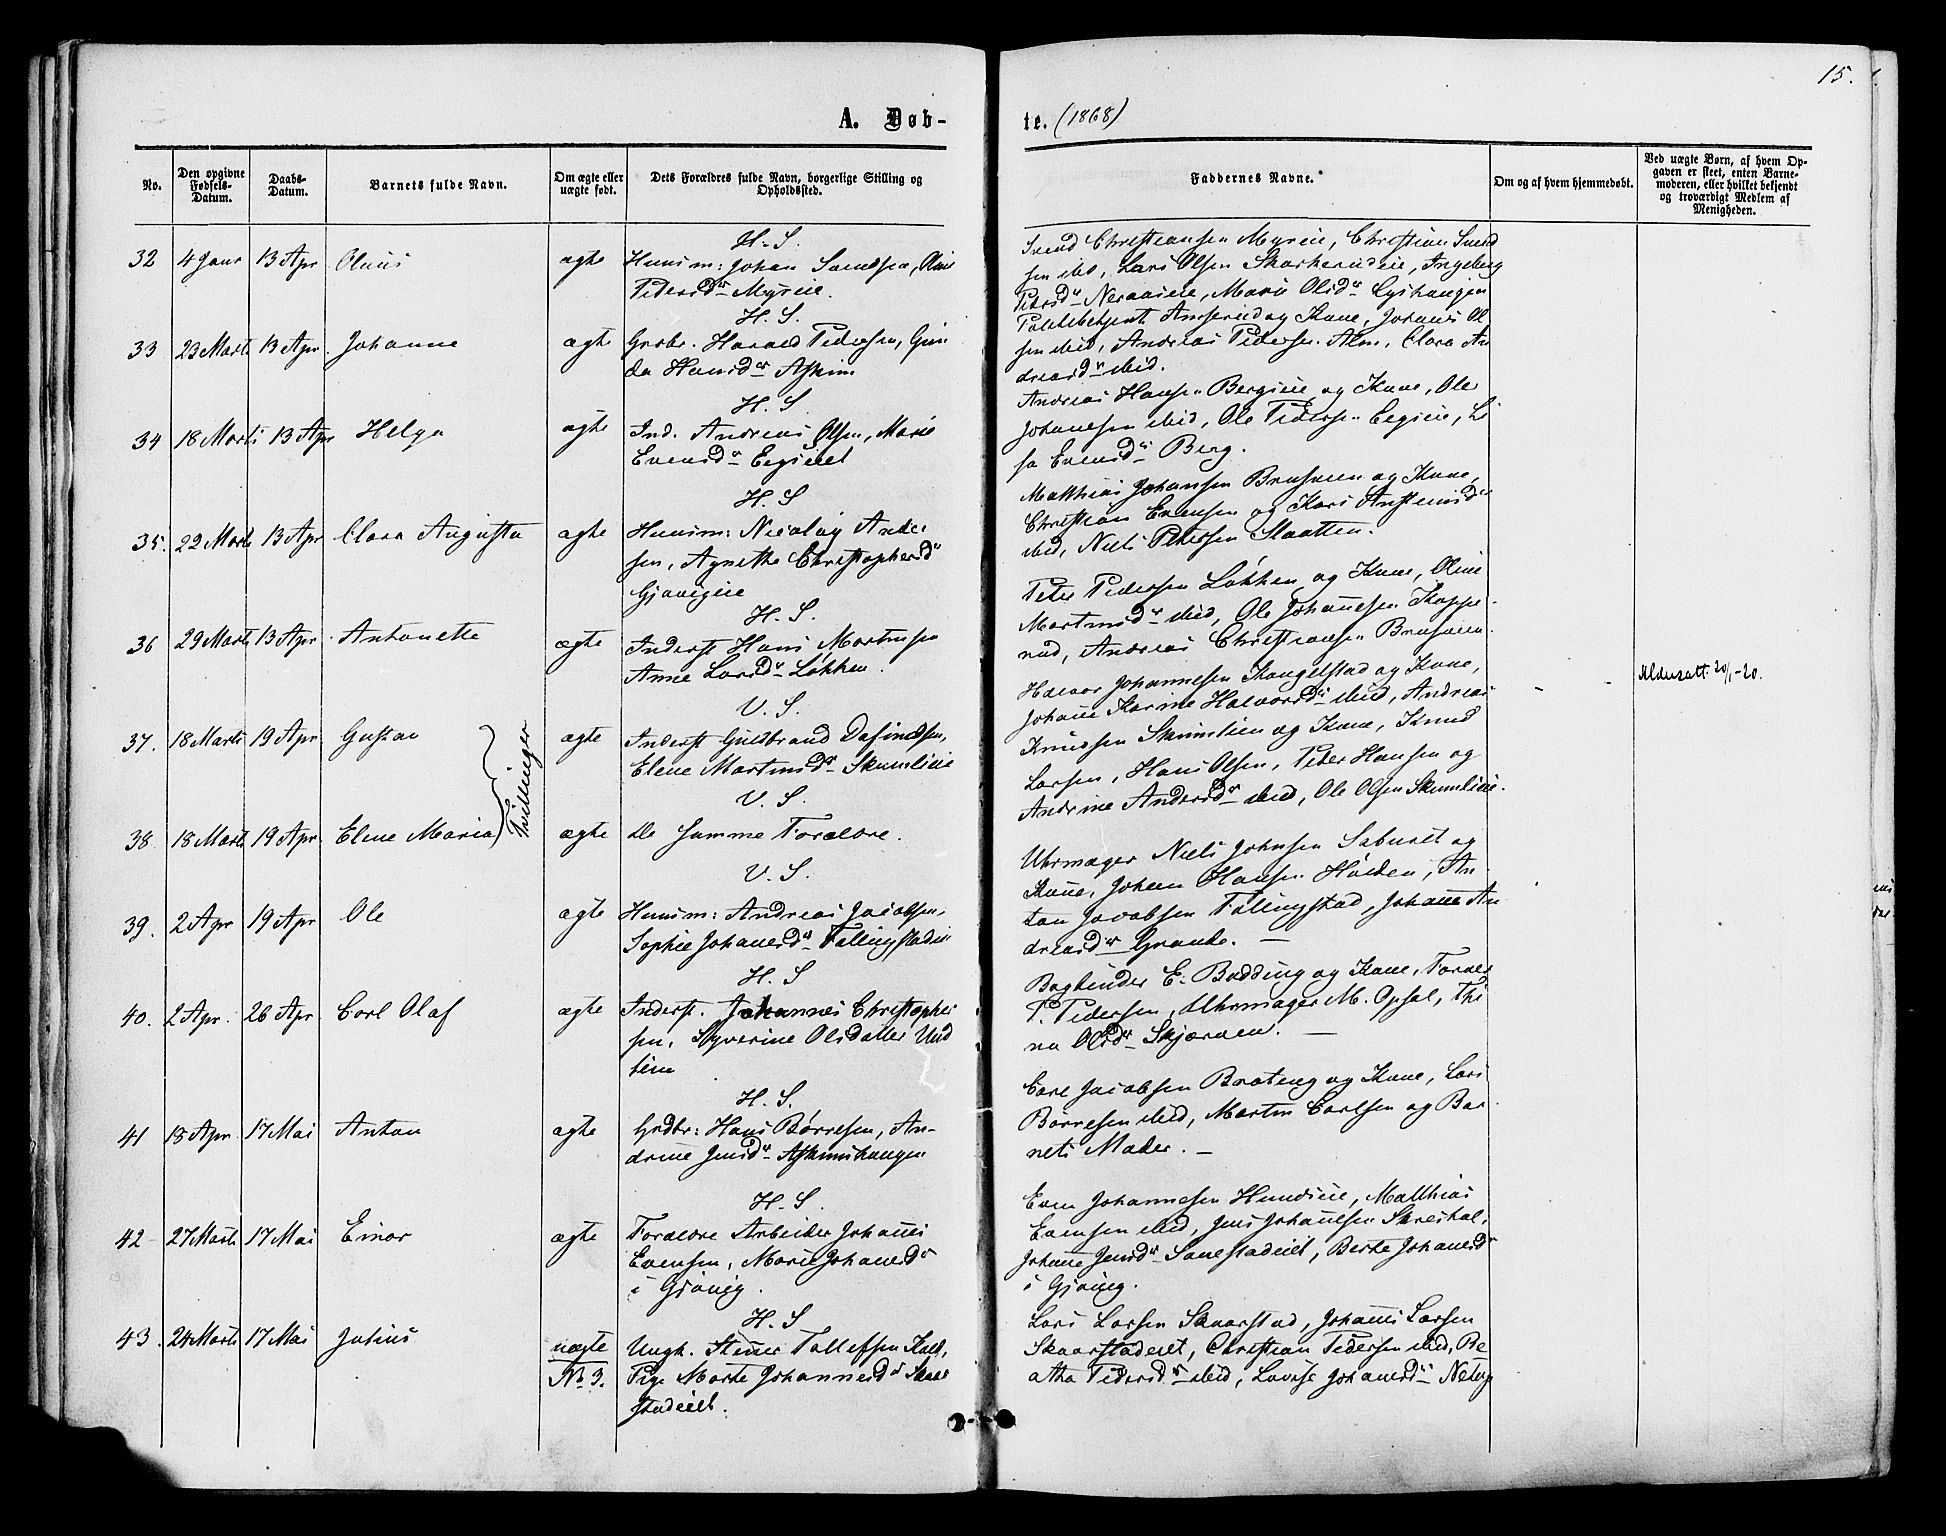 15.
A. Døb-
te. (1868)
No.
Den opgivne Fødsels-Datum.
Daabs-Datum.
Barnets fulde Navn.
Om ægte eller uægte født.
Dets Forældres fulde Navn, borgerlige Stilling og Opholdssted.
Faddernes Navne.
Om og af hvem hjemmedøbt.
Ved uægte Børn, af hvem Opgaven er skeet, enten Barnemoderen, eller hvilket bekjendt og troværdigt Medlem af Menigheden.
H. S.
32 4 Janr 13 Apr Olaus ægte Huusm: Johan Svendsen, Oline
Pedersdr Myreie.
Svend Christiansen Myreie, Christian Svend
sen ibid, Lars Olsen Skarkerudeie, Ingeborg
Pedersdr Neraaseie, Marie Olsdr Lyshaugen
H. S.
33 23 Marts 13 Apr Johanne ægte Grdbr. Harald Pedersen, Gun
da Hansdr Askim
og Kone, Johanes Ol
sen ibid, Andreas Pedersen Alm, Clara An
dreasdr ibid.
H. S
34 18 Marts 13 Apr Helga ægte Ind. Andreas Olsen, Marie
Evensdr Eegeiet
Andreas Hansen Bergseie og Kone, Ole
Johansen ibid, Ole Pedersen Eegeie, Li
sa Evensdr Berg.
H. S
35. 22 Marts 13 Apr Clara Augusta ægte Huusm: Nicolay Ander
sen, Agnethe Christophersdr
Gjøvigeie
Matthias Johansen Brusveen og Kone,
Christian Evensen og Kari Anstensdr
ibid, Niels Petersen Slaatten.
H. S.
36 29 Marts 13 Apr Antonette ægte Inderst Hans Martinsen
Anne Larsdr Løkken.
Peter Pedersen Løkken og Kone, Oline
Martinsdr ibid, Ole Johannesen Koppe
rud, Andreas Christiansen Brusveen.
V. S.
37. 18 Marts 19 Apr Gustav ægte Inderst Guldbrand Dafindsen,
Elene Martinsdr Skumlieie
Tvillinger
Halvor Johannesen Kongelstad og Kone,
Johanne Karine Halvorsdr ibid, Andreas
Knudsen Skumlien og Kone, Knud
Larsen, Hans Olsen, Peder Hansen og
Andrine Andersdr ibid, Ole Olsen Skumlieie.
Aldersatt. 20/1-20.
V. S.
38. 18 Marts 19 Apr Elene Maria ægte de samme Forældre.
V. S.
39. 2 Apr 19 Apr Ole ægte Huusm: Andreas Jacobsen,
Sophie Johanesdr Fallingstadeie
Uhrmager Niels Johnsen Sebuset og
Kone, Johan Hansen Holden, An
ton Jacobsen Fallingstad, Johanne An
dreasdr Grande. —
H. S
40. 2 Apr. 26 Apr Carl Olaf ægte Inderst. Johannes Christopher
sen, Syverine Olsdatter
Bogbinder E. Bødding og Kone, Farver
P. Pedersen, Uhrmager M. Opsal, Thi
na Olsdr Skjerven. —
H. S.
41 18 Apr. 17 Mai Anton ægte Grdbr: Hans Børresen, An-
drine Jensdr Askimshaugen
Carl Jacobsen Brateng og Kone, Lars
Børresen ibid, Martin Carlsen og Bar
nets Moder. —
H. S.
42 27 Marts 17 Mai Einar ægte Forældre Arbeider Johannes
Evensen, Marie Johanesdr
i Gjøvig.
Even Johannesen Hundseie, Matthias
Evensen ibid, Jens Johannesen Skrestal,
Johanne Jensdr Sonestadeiet, Berte Johanesdr
i Gjøvig.
H. S
43. 24 Marts 17 Mai Julius uægte
No 3.
Ungk. Stener Tollefsen Kald,
Pige Marte Johannesdr Skaar
stadeiet.
Lars Larsen Skaarstad, Johannes Larsen
Skaarstadeiet, Christian Pedersen ibid, Be
atha Pedersdr ibid, Lovise Johanesdr